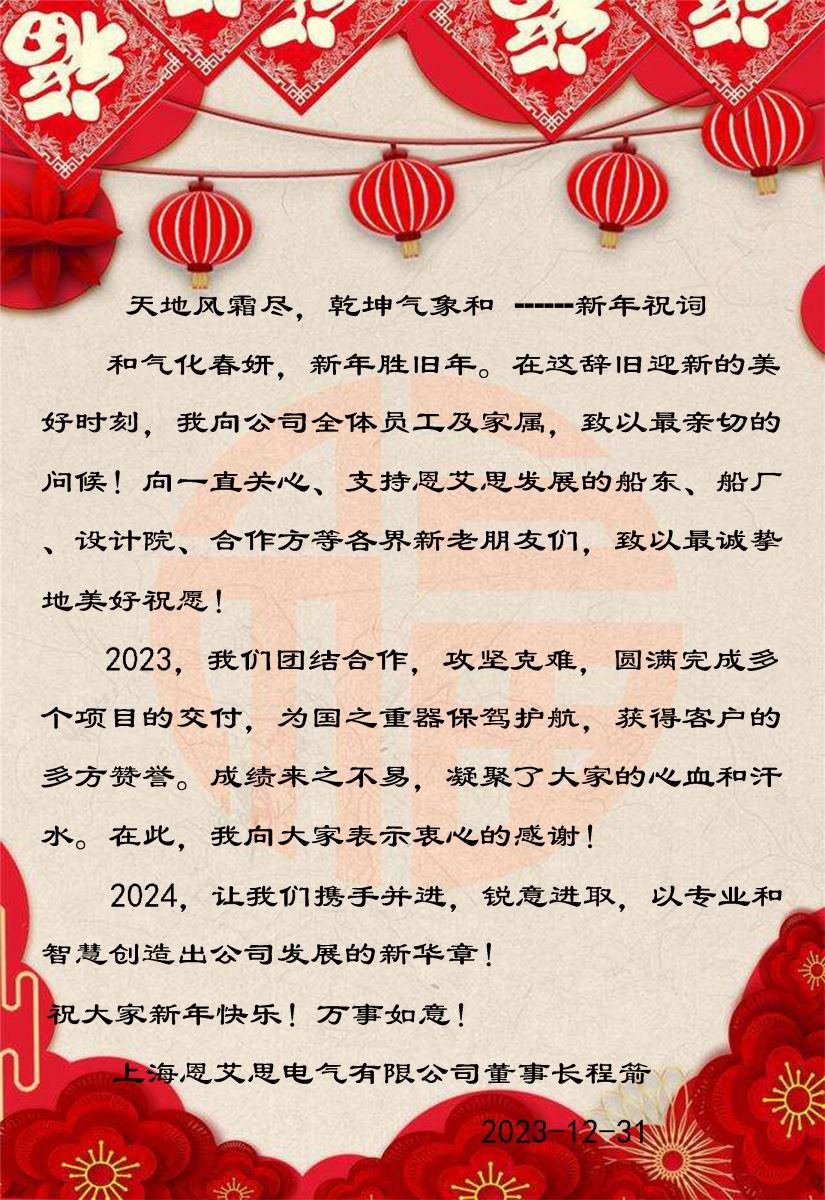 福 福 福 福 福
天地风霜尽，乾坤气象和 ------新年祝词
和气化春妍，新年胜旧年。在这辞旧迎新的美
好时刻，我向公司全体员工及家属，致以最亲切的
问候！向一直关心、支持恩艾思发展的船东、船厂
、设计院、合作方等各界新老朋友们，致以最诚挚
地美好祝愿！
2023，我们团结合作，攻坚克难，圆满完成多
个项目的交付，为国之重器保驾护航，获得客户的
多方赞誉。成绩来之不易，凝聚了大家的心血和汗
水。在此，我向大家表示衷心的感谢！
2024，让我们携手并进，锐意进取，以专业和
智慧创造出公司发展的新华章！
祝大家新年快乐！万事如意！
上海恩艾思电气有限公司董事长程箭
2023-12-31